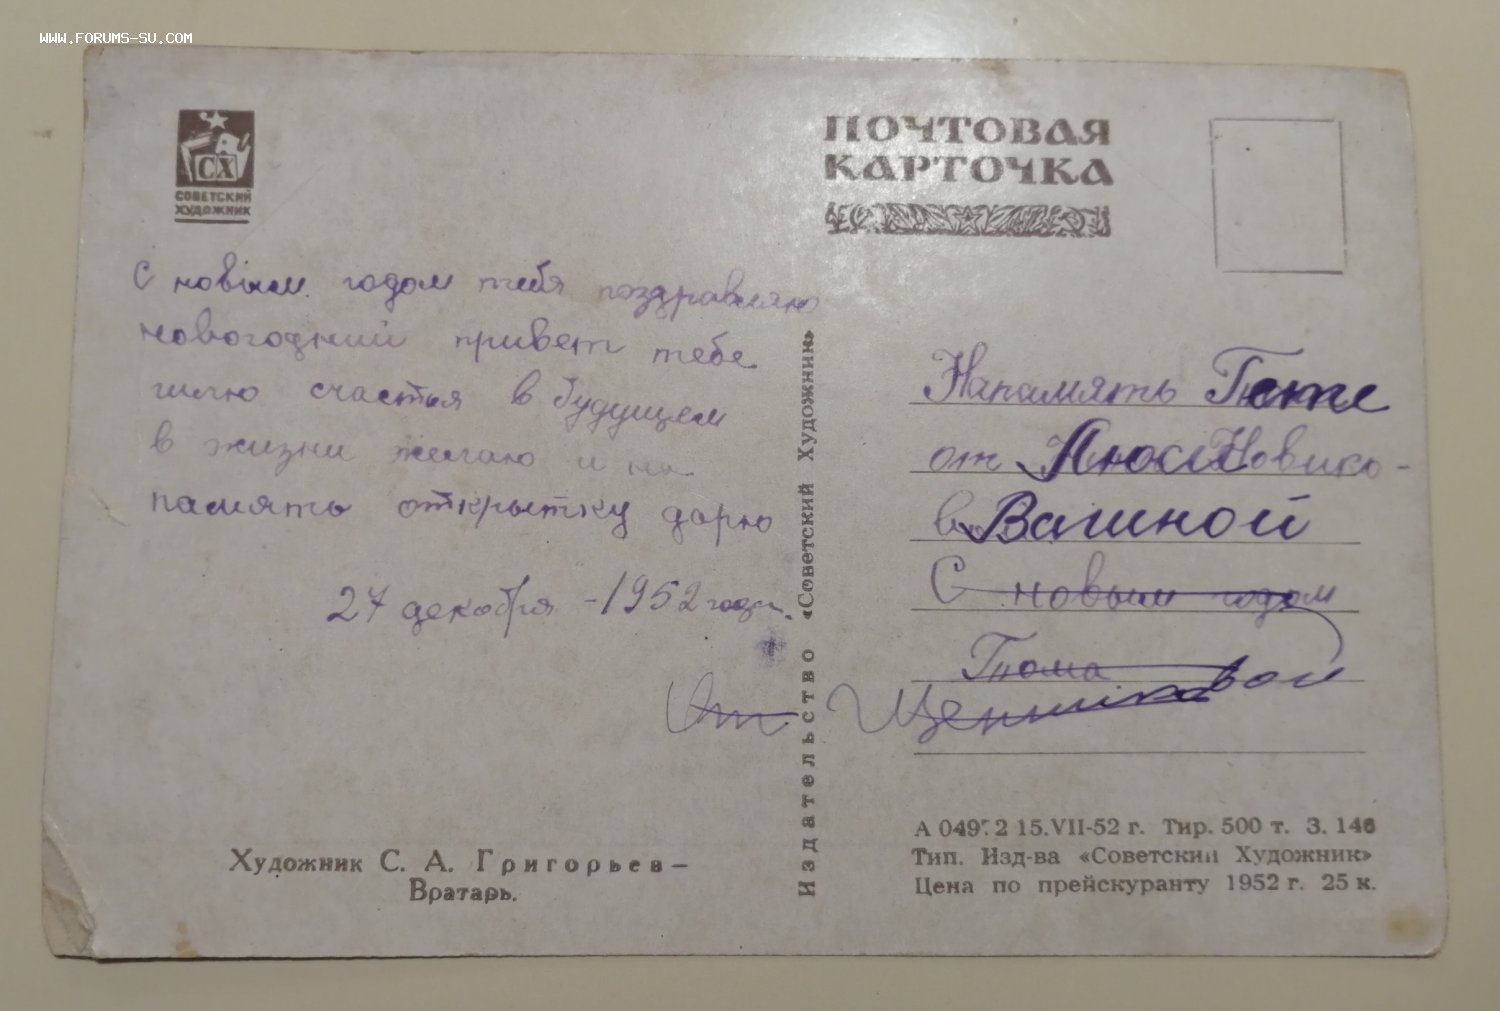 WWW.FORUMS-SU.COM
СХ
СОВЕТСКИЙ
ХУДОЖНИК
ПОЧТОВАЯ
КАРТОЧКА
С новым годом тебя поздравляю
новогодний привет тебе
шлю счастья в будущем
в жизни желаю и на
память открытку дарю
27 декабря - 1952 года.
От
Издательство «Советский Художник»
Напамять
от Новико-
С новым годом
Тома
А 15.VII-52 г. Тир. 500 т. З. 146
Тип. Изд-ва «Советский Художник»
Цена по прейскуранту 1952 г. 25 к.
Художник С. А. Григорьев —
Вратарь.